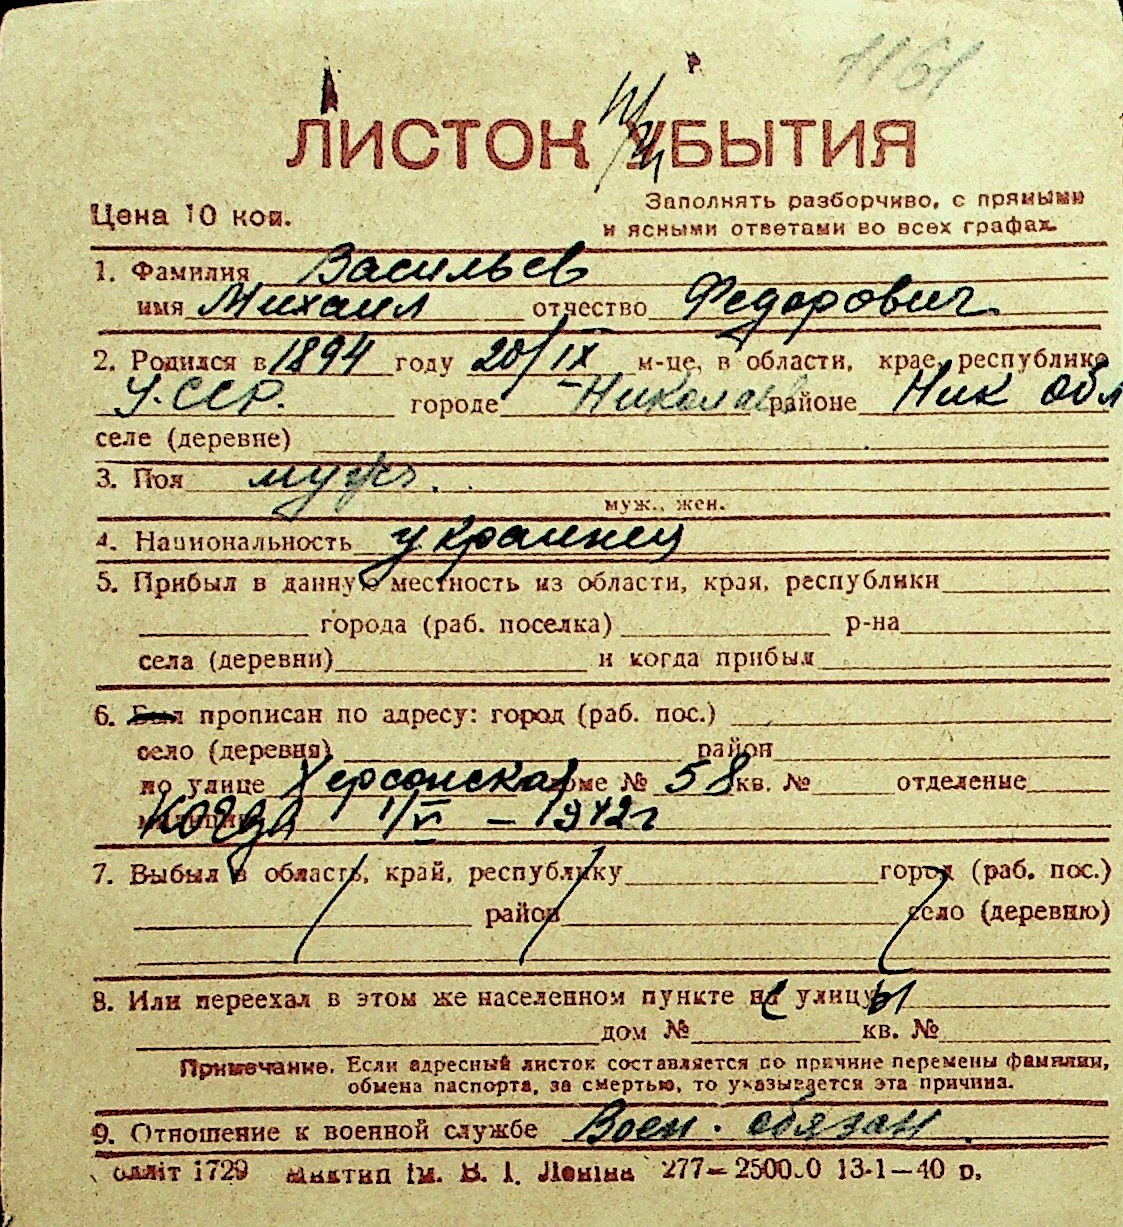 1161
ЛИСТОК УБЫТИЯ
Цена 10 коп.
Заполнять разборчиво, с прямыми
и ясными ответами во всех графах.
1. Фамилия Васильев
имя Михаил отчество Федорович
2. Родился в 1894 году 20/IX м-це, в области, крае, республике
У.ССР. городе Николаев районе Ник обл
селе (деревне)
3. Пол муж.
муж., жен.
4. Национальность украинец
5. Прибыл в данную местность из области, края, республики
города (раб. поселка) р-на
села (деревни) и когда прибыл
6. Был прописан по адресу: город (раб. пос.)
село (деревня) район
по улице Херсонская доме № 58 кв. № отделение
милиции когда 1/VI - 1942 г
7. Выбыл в область, край, республику город (раб. пос.)
район село (деревню)
8. Или переехал в этом же населенном пункте с улицы
дом № кв. №
Примечание. Если адресный листок составляется по причине перемены фамилии,
обмена паспорта, за смертью, то указывается эта причина.
9. Отношение к военной службе Воен. обязан
одліт 1729 Миктип ім. В. І. Леніна 277—250000 13-1—40 р.